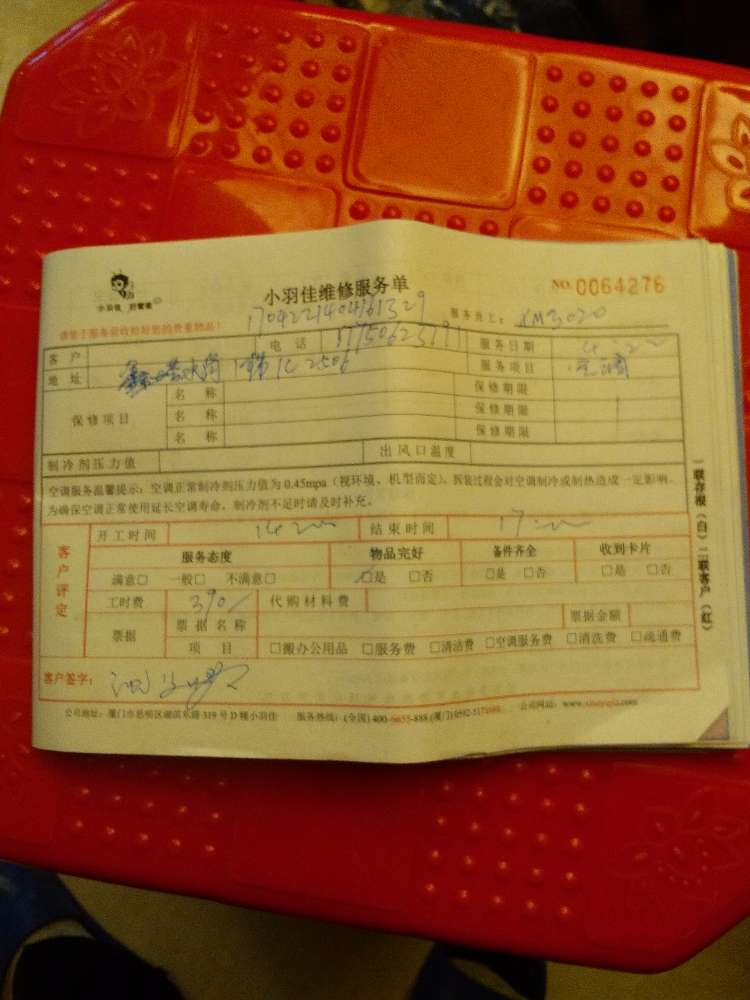 小羽佳 好管家
小羽佳维修服务单
NO. 0064276
请您于服务前收拾好您的贵重物品!
服务员工: XM3020
客户
电话
服务日期 4.22
地址 1C 2506
服务项目 空调
保修项目
名称 保修期限
名称 保修期限
名称 保修期限
制冷剂压力值 出风口温度
空调服务温馨提示:空调正常制冷剂压力值为0.45mpa(视环境、机型而定)。拆装过程会对空调制冷或制热造成一定影响。
为确保空调正常使用延长空调寿命,制冷剂不足时请及时补充。
客户评定
开工时间 结束时间
服务态度 物品完好 备件齐全 收到卡片
满意□ 一般□ 不满意□ □是 □否 □是 □否 □是 □否
工时费 390/ 代购材料费
票据 票据名称 票据金额
项目 □搬办公用品 □服务费 □清洁费 □空调服务费 □清洗费 □疏通费
客户签字:
公司地址:厦门市思明区湖滨东路319号D楼小羽佳 服务热线:(全国)400-6655-888 公司网站:www.xiaoyujia.com
一联存根(白)二联客户(红)